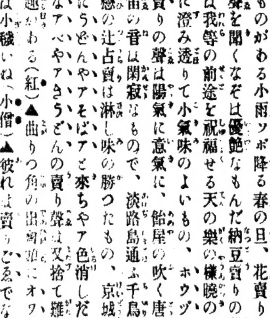 ものがある小雨ソボ降る春の旦、花賣り
聲を聞くなぞは優艶なもんだ納豆賣りの
は我等の前途を祝福せる天の樂の樣曉の
に澄み透りて小氣味のよいもの、ホウヅ
賣りの聲は陽氣に意氣に、飴屋の吹く唐
笛の音は閑寂なもので、淡路島通ふ千鳥
慼の辻占賣は淋し味の勝つたもの、京城
にうどんやアそばアと來ちやア色消しだ
なアべやアきうどんの賣り聲は捨て難
趣がある(紅)▲曲りつ角の出合頭にオワ
は小穢いね(小僧)▲彼れは賣りごゑでな